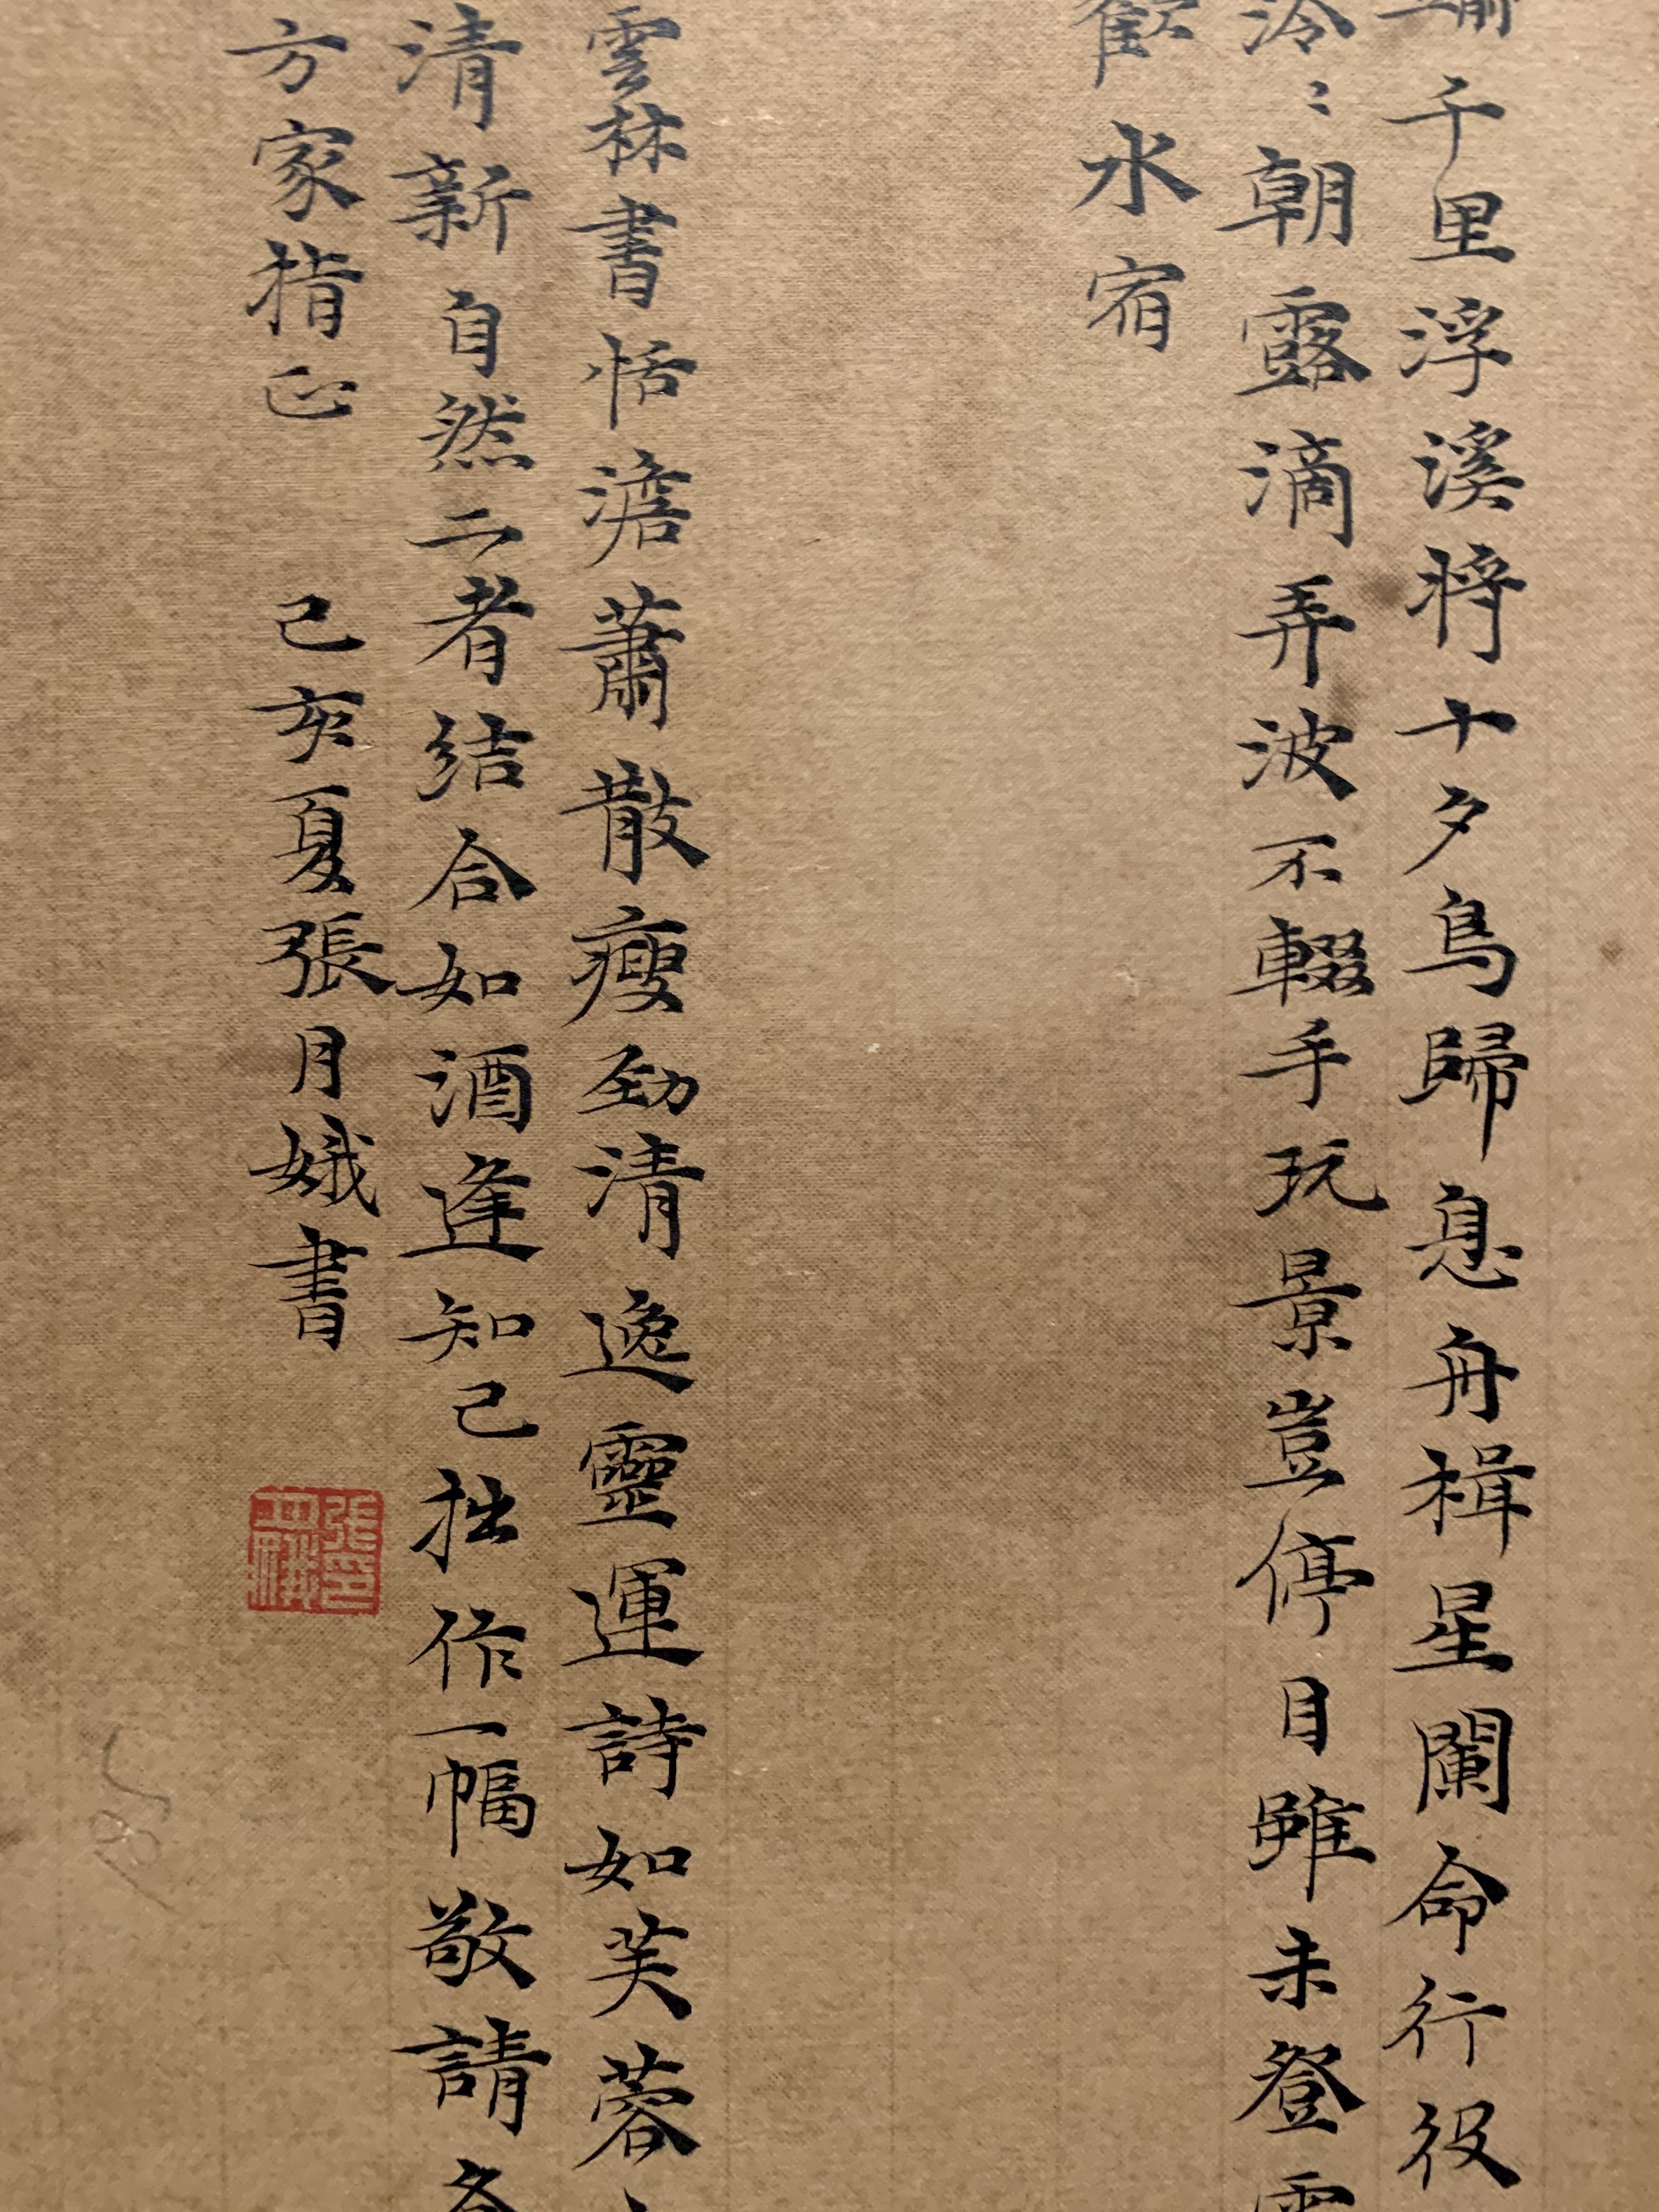 千里浮溪將十夕鳥歸息舟楫星闌命行役
泠〻朝露滴弄波不輟手玩景豈停目雖未登
歡水宿
雲林書恬澹蕭散瘦勁清逸靈運詩如芙蓉
清新自然二者结合如酒逢知己拙作一幅敬請各
方家指正 己亥夏張月娥書